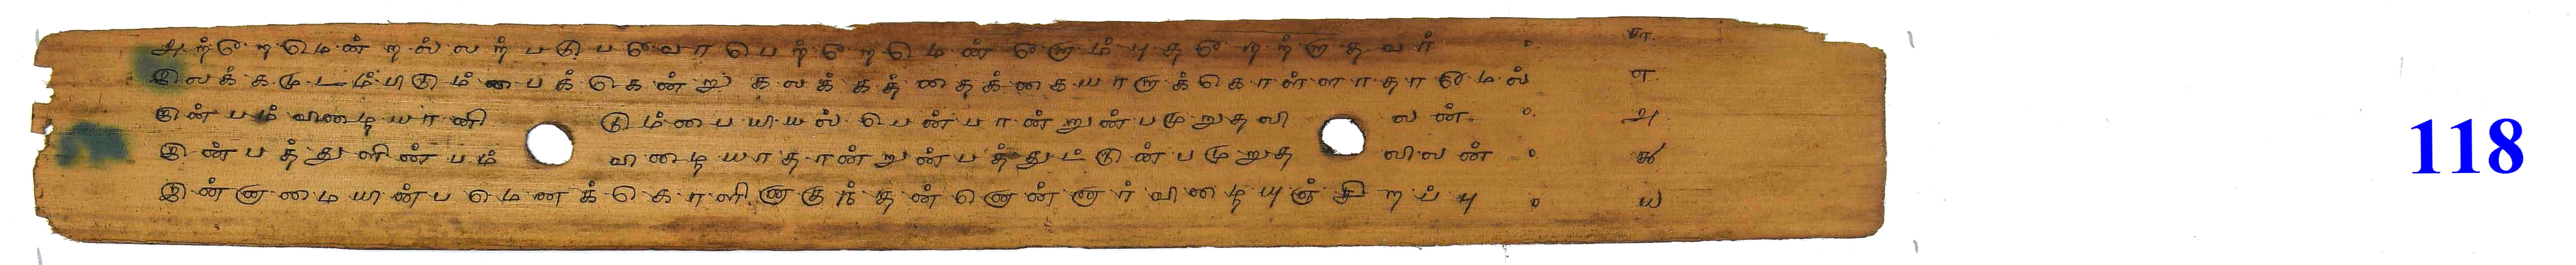 அற்றேமென்றல்லற்படுபவோ பெற்றேமென்றோம்புதறேற்றாதவர் ௦ ௬
இலக்கமுடம்பிடும்பைக்கென்று கலக்கத்தைக்கையாறாக்கொள்ளாதாமேல் ௭
இன்பம் விழையானி டும்பையியல்பென்பான்றுன்பமுறுதலி லன் ௦ ௮
இன்பத்துளின்பம் விழையாதான்றுன்பத்துட்டுன்பமுறுத லிலன் ௦ ௯
இன்னாமையின்பமெனக்கொளினாகுந்தன்னொன்னார் விழையுஞ்சிறப்பு ௦ ௰
118